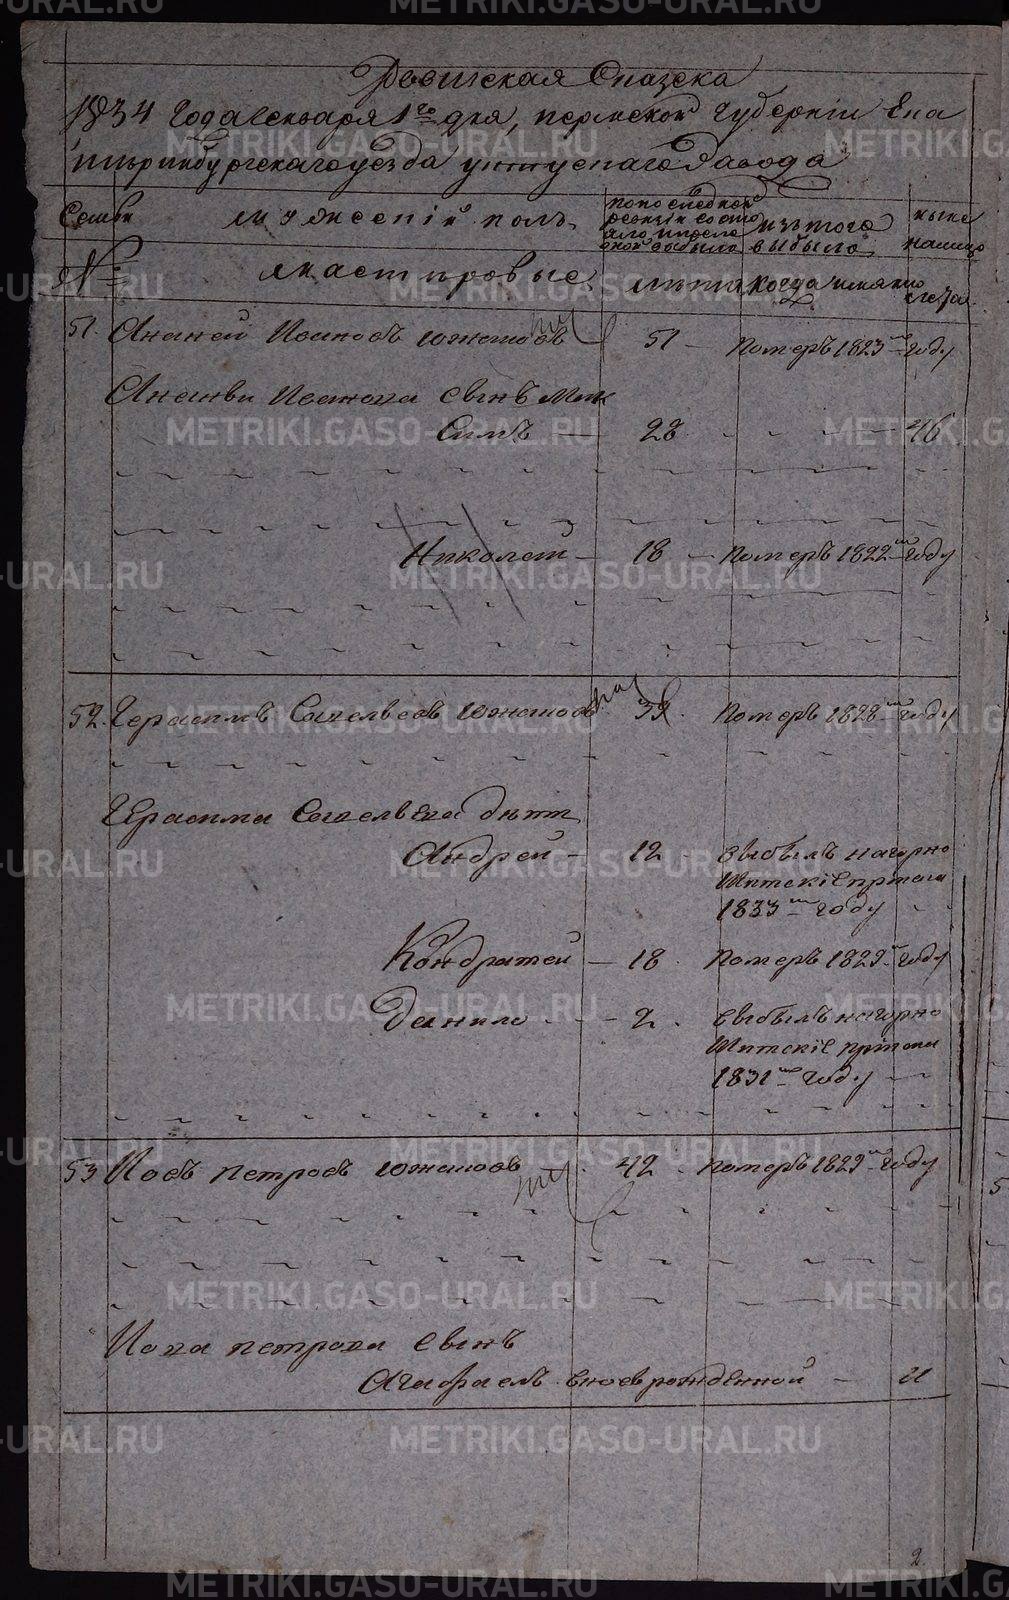 Ревижская Сказска
1834 Года Генваря 1го дня, пермской Губернiи Ека
теринбургскаго уезда уктускаго Завода
Семьи
№
мужескiй полъ
мастеровые
попоследней
ревизiи состо
яло ипосле
оной выбыло
лета
изтого
выбыло
когда имянно
ныне
налицо
лета
51 Ананей Ивановъ южаковъ 51 – Померъ 1823го году
Ананьи Иванова сынъ Мак
симъ — 28 – – – 46
Николай – 18 – Померъ 1822го году
52. Герасимъ Савельевъ южаковъ 39. Померъ 1828го году
Герасима Савельева дети
Андрей – 12 выбылъ нагорно
Щитскiе прiиски
1833го году
Кондратей – 18. Померъ 1829го году
Данило – 2. выбылъ нагорно
Щитскiе прiиски
1831го году
53 Иовъ петровъ южаковъ 42. Померъ 1829го году
Иова петрова сынъ
Агафаелъ вновьрожденной – 11
2.
METRIKI.GASO-URAL.RU